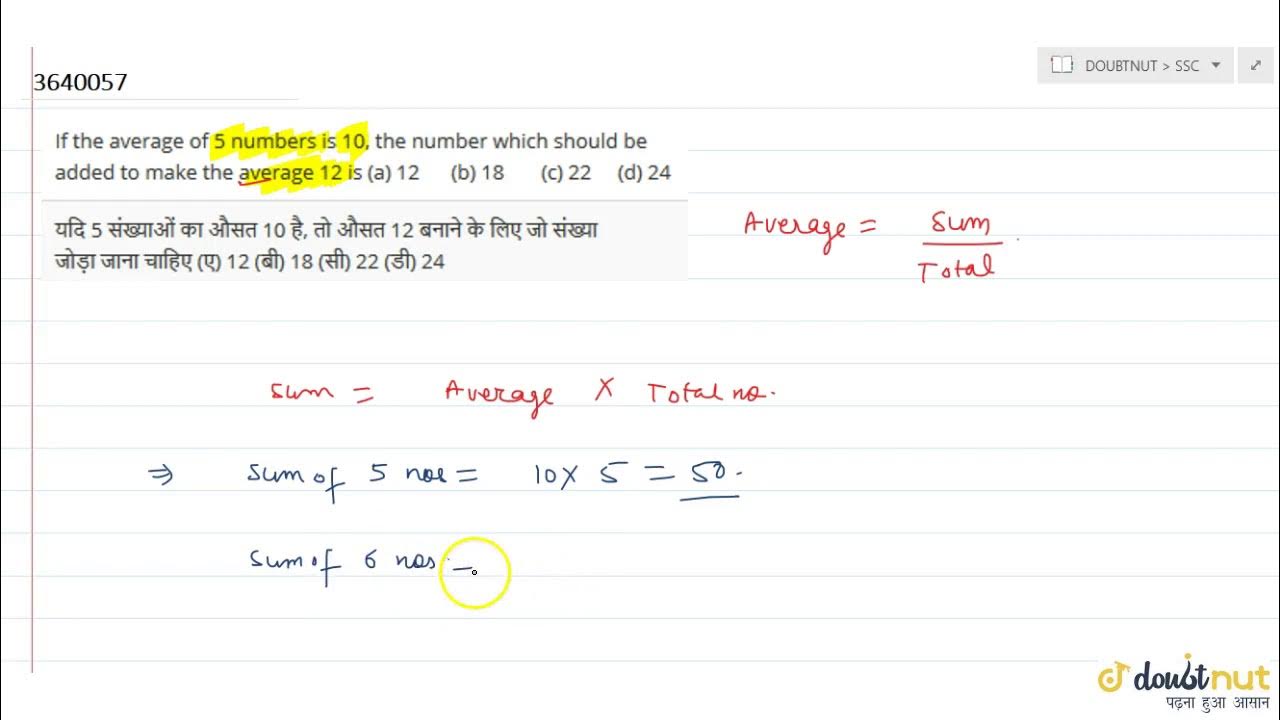 3640057
DOUBTNUT > SSC
If the average of 5 numbers is 10, the number which should be
added to make the average 12 is (a) 12 (b) 18 (c) 22 (d) 24
यदि 5 संख्याओं का औसत 10 है, तो औसत 12 बनाने के लिए जो संख्या
जोड़ा जाना चाहिए (ए) 12 (बी) 18 (सी) 22 (डी) 24
Average = Sum
Total
Sum = Average X Total no.
⇒ Sum of 5 nos = 10 X 5 = 50.
Sum of 6 nos =
doubtnut
पढ़ना हुआ आसान